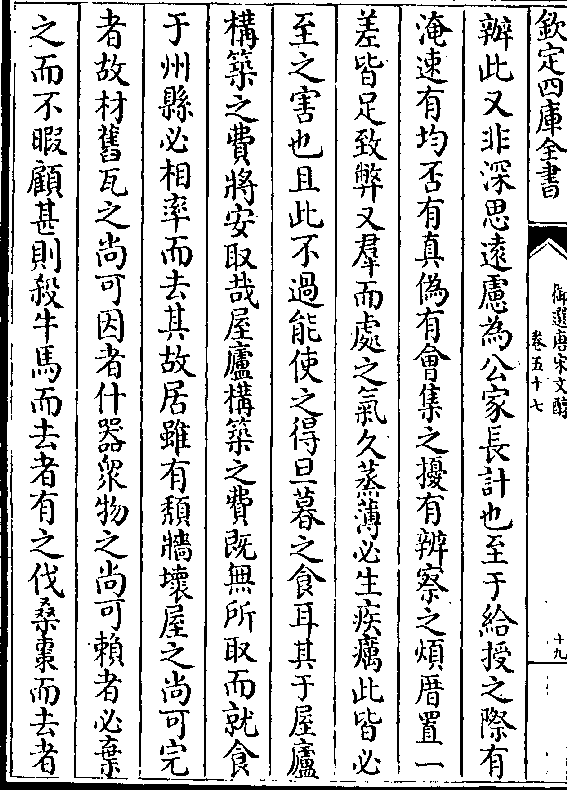 欽定四庫全書
御選唐宋文醇
卷五十七
十九
辦此又非深思遠慮為公家長計也至于給授之際有
淹速有均否有真偽有會集之擾有辨察之煩厝置一
差皆足致弊又羣而處之氣久蒸薄必生疾癘此皆必
至之害也且此不過能使之得旦暮之食耳其于屋廬
構築之費將安取哉屋廬構築之費既無所取而就食
于州縣必相率而去其故居雖有頽墻壞屋之尚可完
者故材舊瓦之尚可因者什器衆物之尚可賴者必棄
之而不暇顧甚則殺牛馬而去者有之伐桑棗而去者